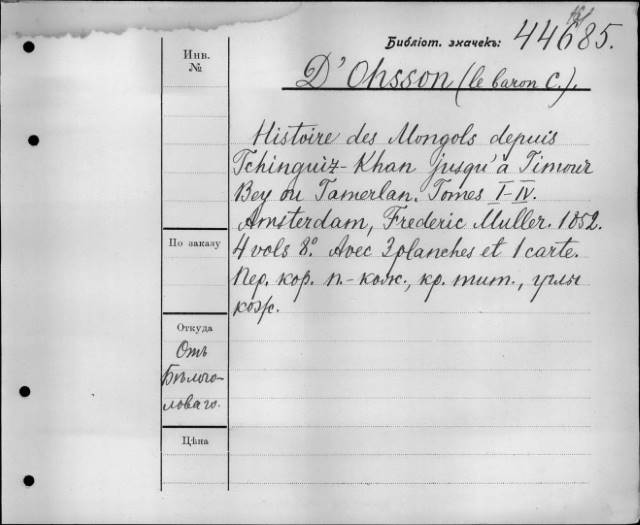 Библіот. значекъ: 44685.
Инв. №
D'Ohsson (le baron C.).
Histoire des Mongols depuis
Tchinguiz-Khan jusqu'à Timour
Bey ou Tamerlan. Tomes I-IV.
Amsterdam, Frederic Muller. 1852.
По заказу
4 vols 8º. Avec 3 planches et 1 carte.
Пер. кор. п.-кож., кр. тит., углы
кож.
Откуда
Отъ
Бѣлого-
ловаго.
Цѣна